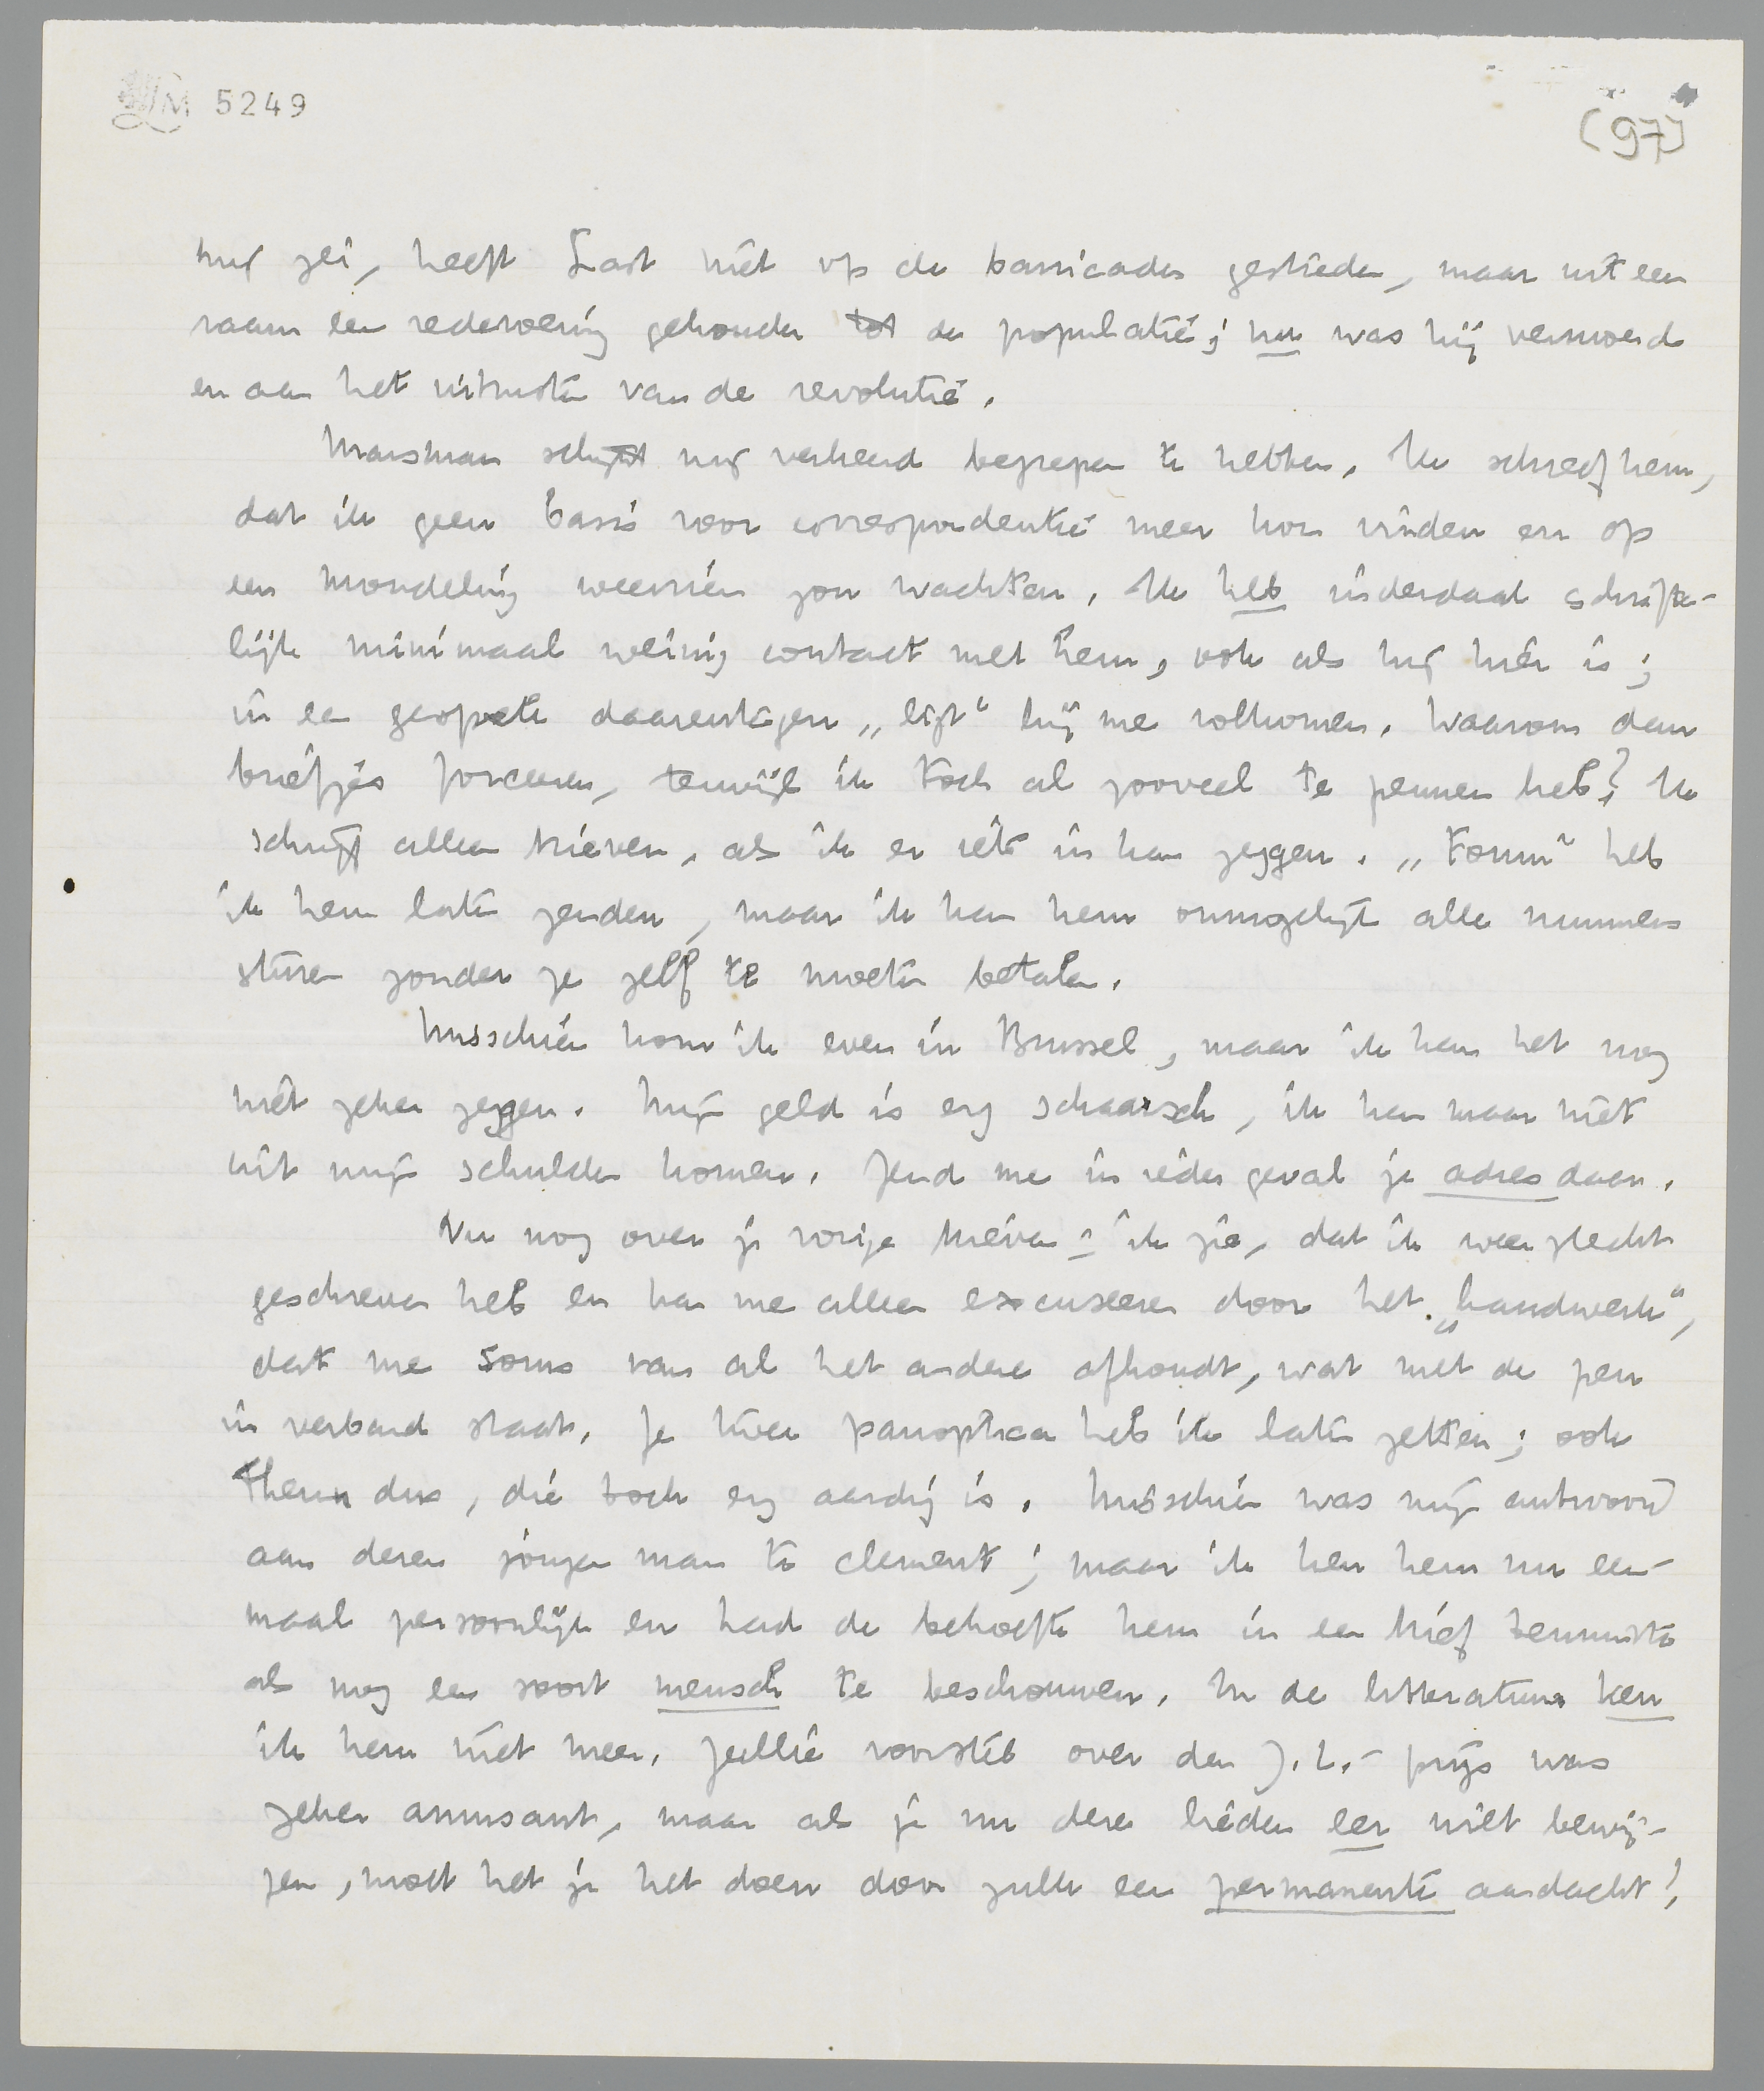 LM 5249
(97)
mij zei, heeft Last niet op de barricades gestreden, maar uit een
raam een redevoering gehouden tot de populatie; nu was hij vermoeid
en aan het uitrusten van de revolutie.
Marsman schijnt mij verkeerd begrepen te hebben. Ik schreef hem,
dat ik geen basis voor correspondentie meer kon vinden en op
een mondeling weerzien zou wachten. Ik heb inderdaad schrifte-
lijk minimaal weinig contact met hem, ook als hij hier is;
in een gesprek daarentegen „ligt" hij me volkomen. Waarom dan
briefjes forceeren, terwijl ik toch al zooveel te pennen heb? Ik
schrijf alleen brieven, als ik er iets in kan zeggen. „Forum" heb
ik hem laten zenden, maar ik kan hem onmogelijk alle nummers
sturen zonder ze zelf te moeten betalen.
Misschien kom ik even in Brussel, maar ik kan het nog
niet zeker zeggen. Mijn geld is erg schaarsch, ik kan maar niet
uit mijn schulden komen. Zend me in ieder geval je adres daar.
Nu nog over je vorige brieven: ik zie, dat ik weer slecht
geschreven heb en kan me alleen excuseeren door het „handwerk",
dat me soms van al het andere afhoudt, wat met de pen
in verband staat. Je twee panoptica heb ik laten zetten; ook
Theun dus, die toch erg aardig is. Misschien was mijn antwoord
aan dezen jongen man te clement; maar ik ken hem nu een-
maal persoonlijk en had de behoefte hem in een brief tenminste
als nog een soort mensch te beschouwen. In de litteratuur ken
ik hem niet meer. Jullie voorstel over den J.L.-prijs was
zeker amusant, maar als je nu deze lieden eer wilt bewij-
zen, moet het je het doen door zulk een permanente aandacht!